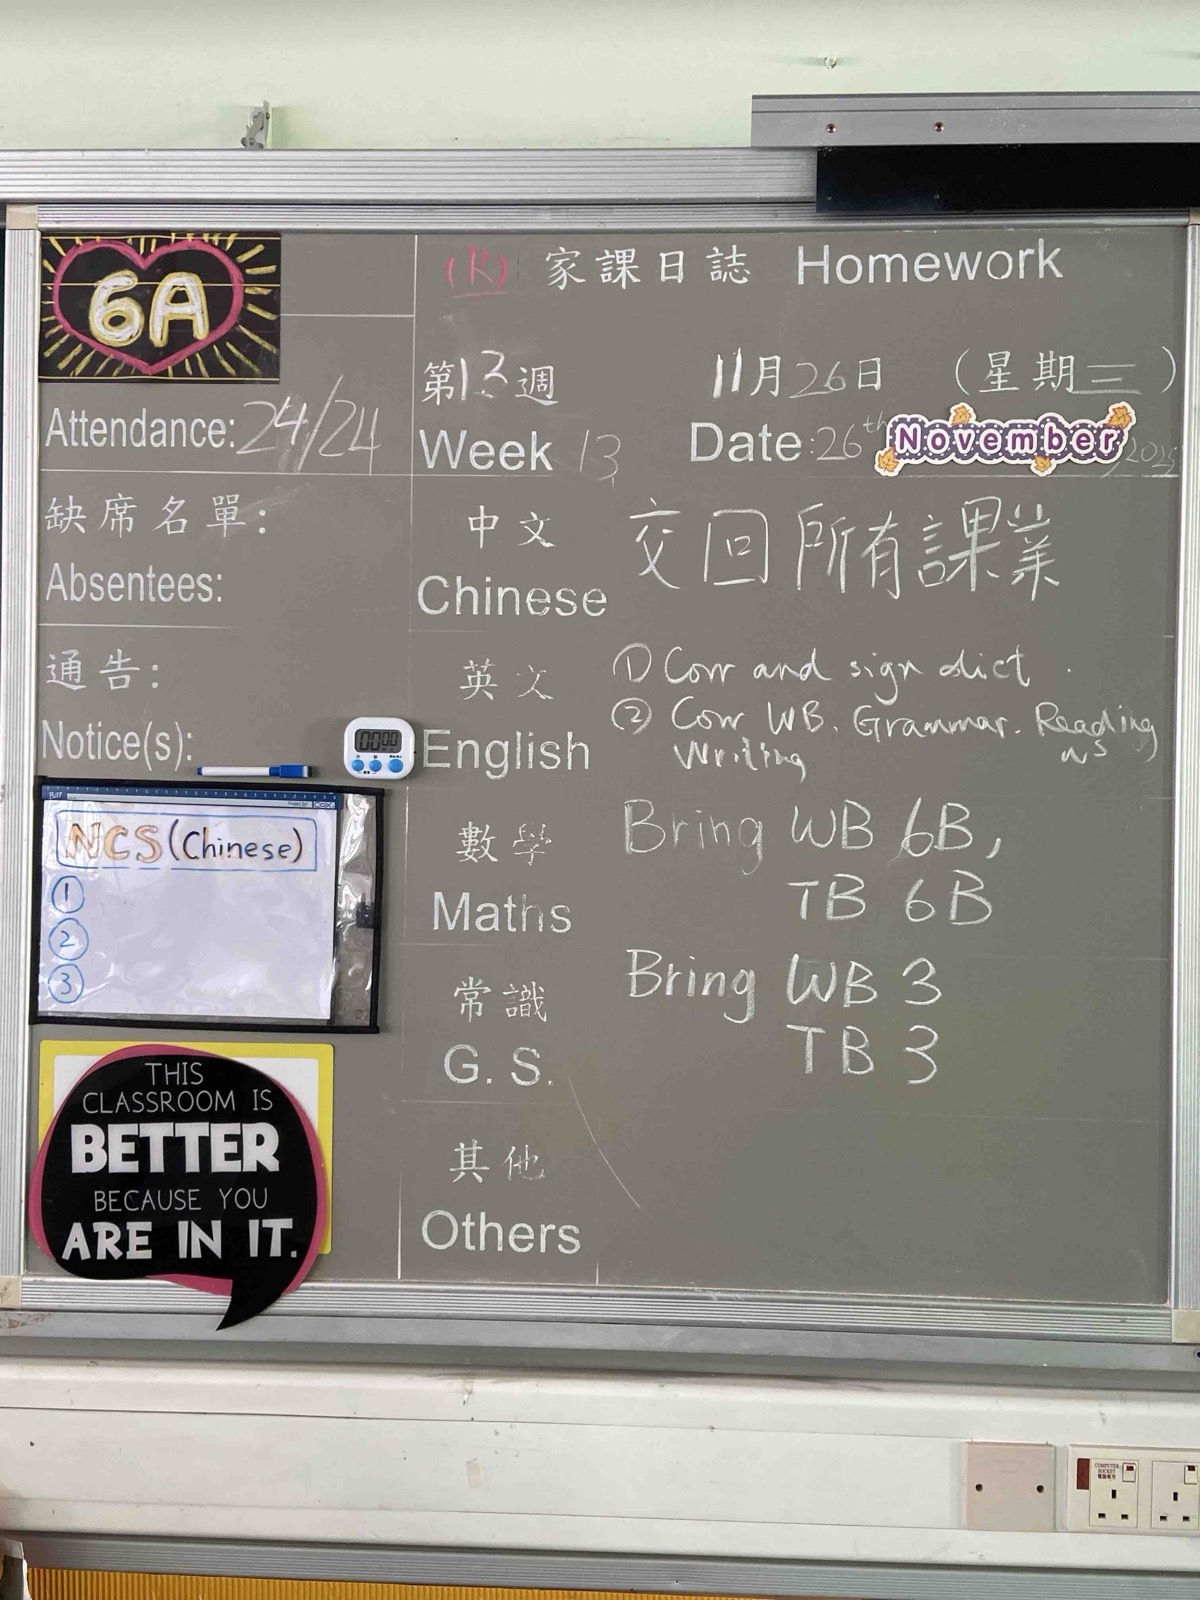 6A
(R) 家課日誌 Homework
第13週 11月26日 (星期三)
Attendance: 24/24
Week 13 Date: 26th November, 2025
缺席名單:
Absentees:
中文 交回所有課業
Chinese
通告:
Notice(s):
英文 ① Corr and sign dict.
② Corr WB. Grammar. Reading
English Writing ws
00:00
NCS (Chinese)
①
②
③
數學 Bring WB 6B,
Maths TB 6B
常識 Bring WB 3
G. S. TB 3
其他
Others
THIS
CLASSROOM IS
BETTER
BECAUSE YOU
ARE IN IT.
COMPUTER
SOCKET
電腦專用